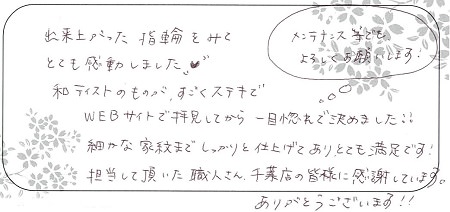 出来上がった 指輪をみて
とても感動しました
和テイストのものが、すごくステキで
WEBサイトで拝見してから 一目惚れで決めました!!
細かな家紋まで しっかりと仕上げてあり、とても満足です!
担当して頂いた職人さん、千葉店の皆様に感謝しています。
ありがとうございます!!
メンテナンス等でも、
よろしくお願いします!